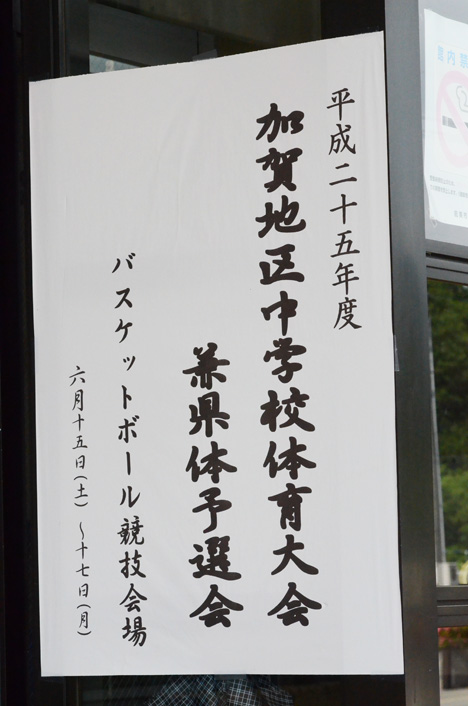 平成二十五年度
加賀地区中学校体育大会
兼県体予選会
バスケットボール競技会場
六月十五日(土)～十七日(月)